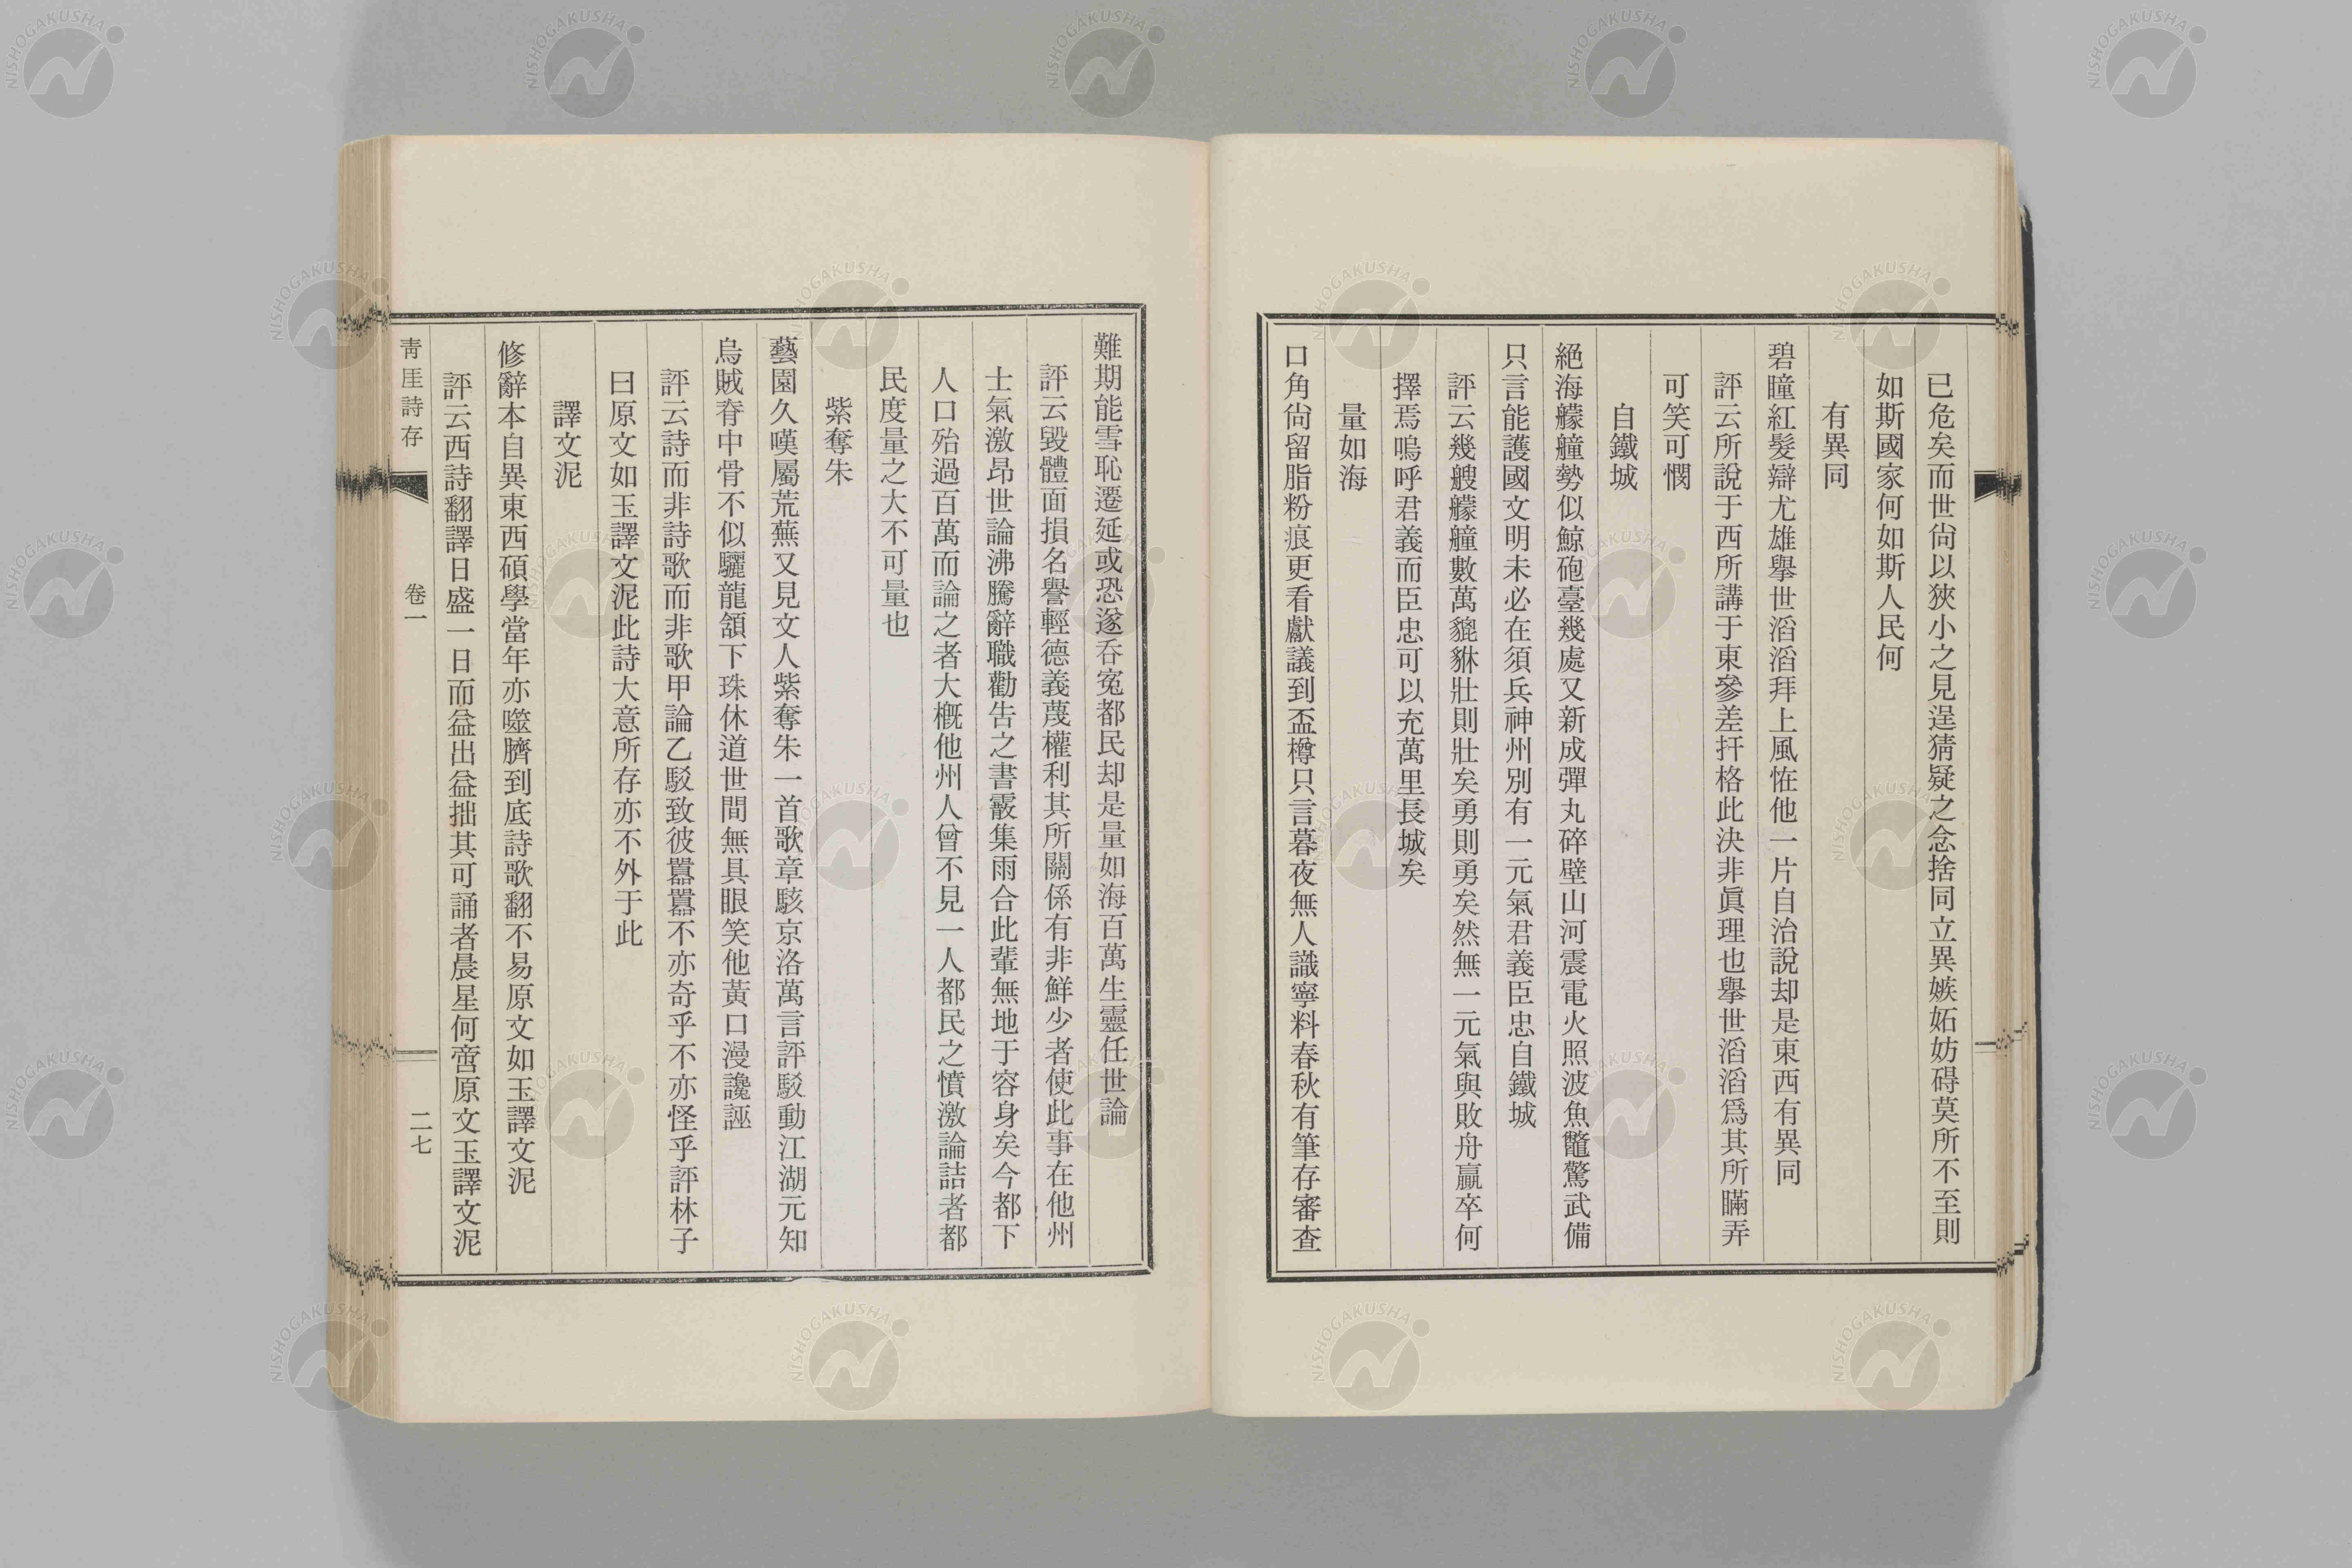 已危矣而世尙以狹小之見逞猜疑之念捨同立異嫉妬妨碍莫所不至則
如斯國家何如斯人民何
有異同
碧瞳紅髮辯尤雄擧世滔滔拜上風恠他一片自治說却是東西有異同
評云所說于西所講于東參差扞格此決非眞理也擧世滔滔爲其所瞞弄
可笑可憫
自鐵城
絕海艨艟勢似鯨砲臺幾處又新成彈丸碎壁山河震電火照波魚鼈驚武備
只言能護國文明未必在須兵神州別有一元氣君義臣忠自鐵城
評云幾艘艨艟數萬貔貅壯則壯矣勇則勇矣然無一元氣與敗舟羸卒何
擇焉嗚呼君義而臣忠可以充萬里長城矣
量如海
口角尙留脂粉痕更看獻議到盃樽只言暮夜無人識寧料春秋有筆存審查
難期能雪恥遷延或恐遂吞寃都民却是量如海百萬生靈任世論
評云毀體面損名譽輕德義蔑權利其所關係有非鮮少者使此事在他州
士氣激昂世論沸騰辭職勸告之書霰集雨合此輩無地于容身矣今都下
人口殆過百萬而論之者大槪他州人曾不見一人都民之憤激論詰者都
民度量之大不可量也
紫奪朱
藝園久嘆屬荒蕪又見文人紫奪朱一首歌章駭京洛萬言評駁動江湖元知
烏賊脊中骨不似驪龍頷下珠休道世間無具眼笑他黃口漫讒誣
評云詩而非詩歌而非歌甲論乙駁致彼囂囂不亦奇乎不亦怪乎評林子
曰原文如玉譯文泥此詩大意所存亦不外于此
譯文泥
修辭本自異東西碩學當年亦噬臍到底詩歌翻不易原文如玉譯文泥
評云西詩翻譯日盛一日而益出益拙其可誦者晨星何啻原文玉譯文泥
靑厓詩存
卷一
二七
NISHOGAKUSHA